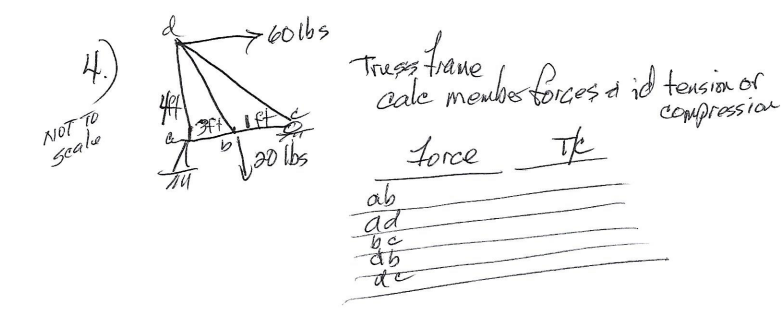 4.)
NOT TO
scale
d
60 lbs
4ft
a
3ft
b
1ft
c
20 lbs
Truss frame
calc member forces & id tension or
compression
Force T/C
ab
ad
bc
db
dc